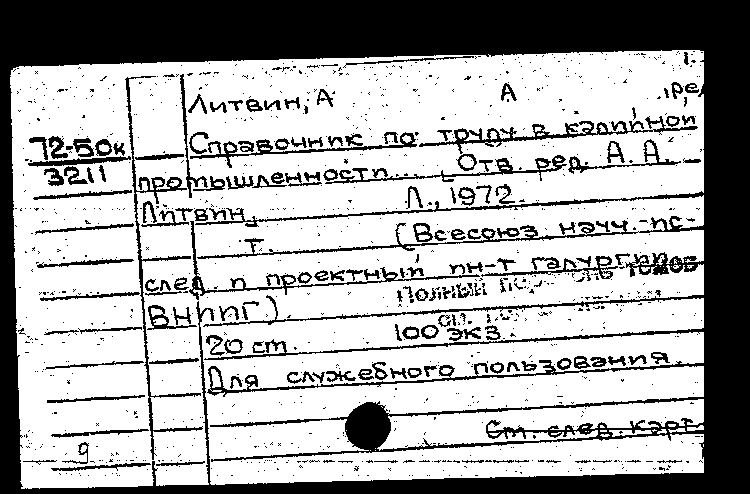 Литвин, А А ,ред
72-50к
3211
Справочник по труду в калийной
промышленности... Отв. ред. А. А.
Литвин. Л., 1972.
т. (Всесоюз. научн.-ис-
след. и проектный ин-т галургии
Полный томов
ВНИИГ)
20 см. 100 экз.
Для служебного пользования.
См. след. карт.
9